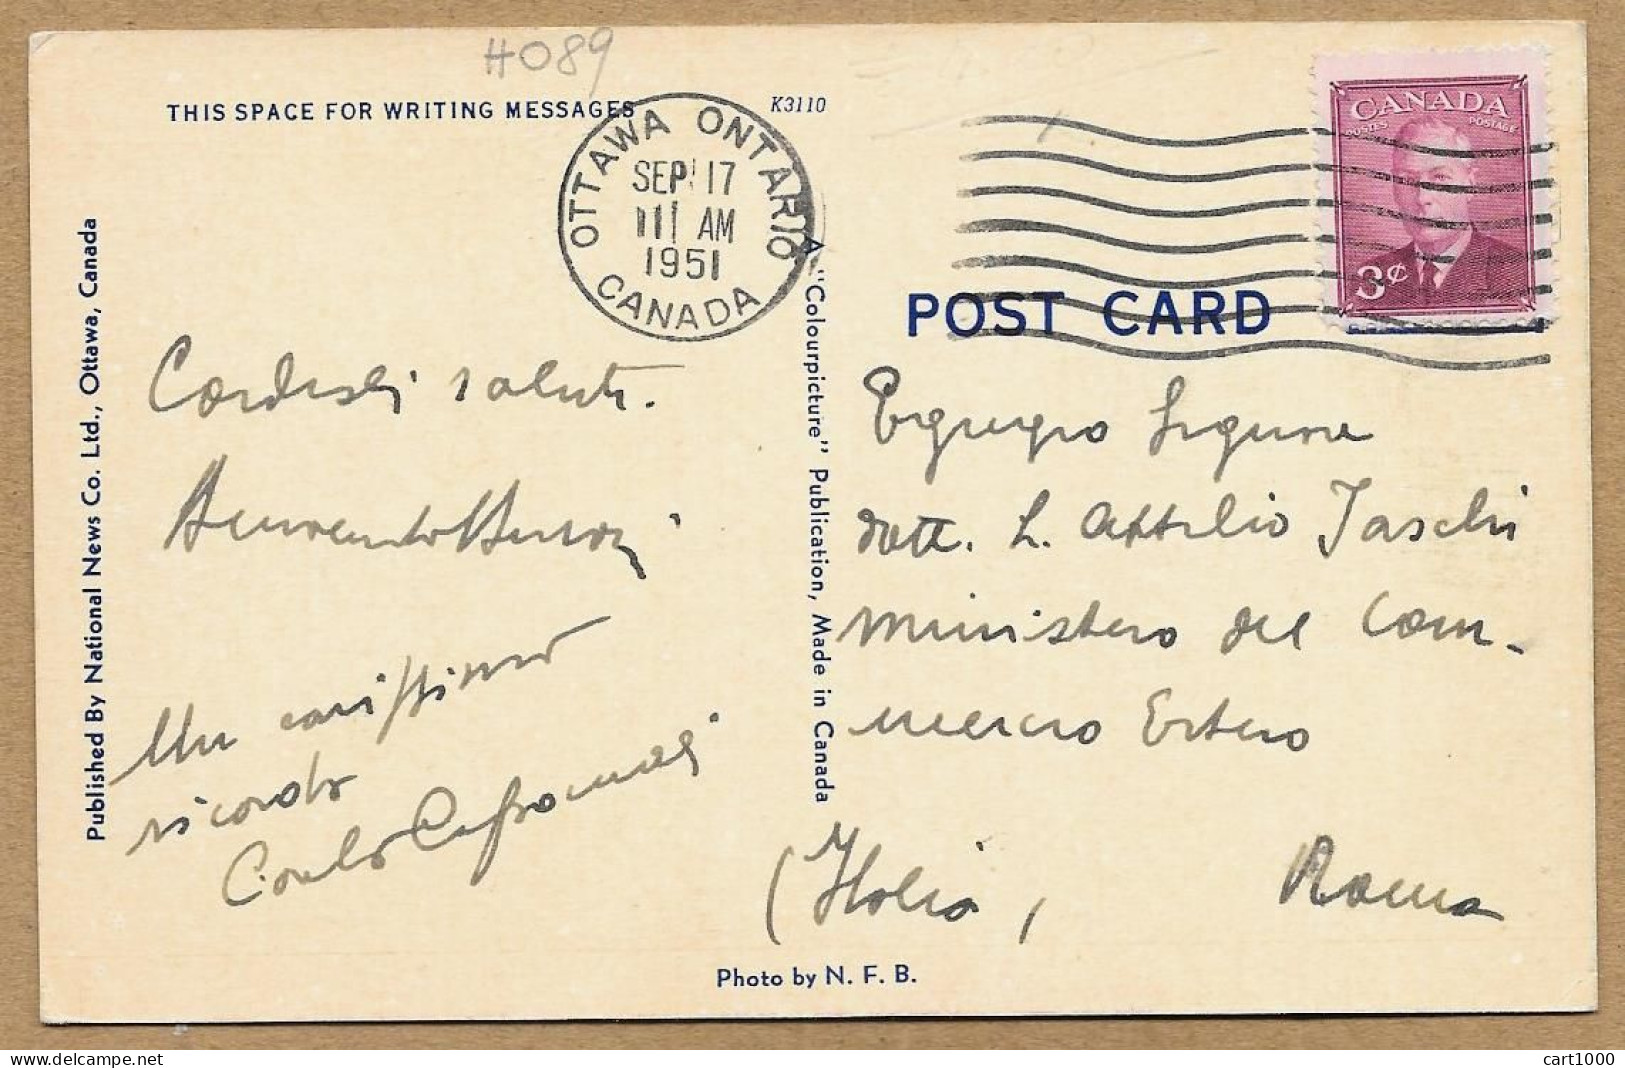 #089
THIS SPACE FOR WRITING MESSAGES
K3110
OTTAWA ONTARIO
SEP 17
11 AM
1951
CANADA
CANADA
POSTES POSTAGE
3¢
POST CARD
Published By National News Co. Ltd., Ottawa, Canada
A "Colourpicture" Publication, Made in Canada
Cordiali saluti.
Benvenuto
Un carissimo
ricordo
Carlo
Egregio Signore
dott. L. Attilio Jaschi
Ministero del Com-
mercio Estero
(Italia) Roma
Photo by N. F. B.
cart1000